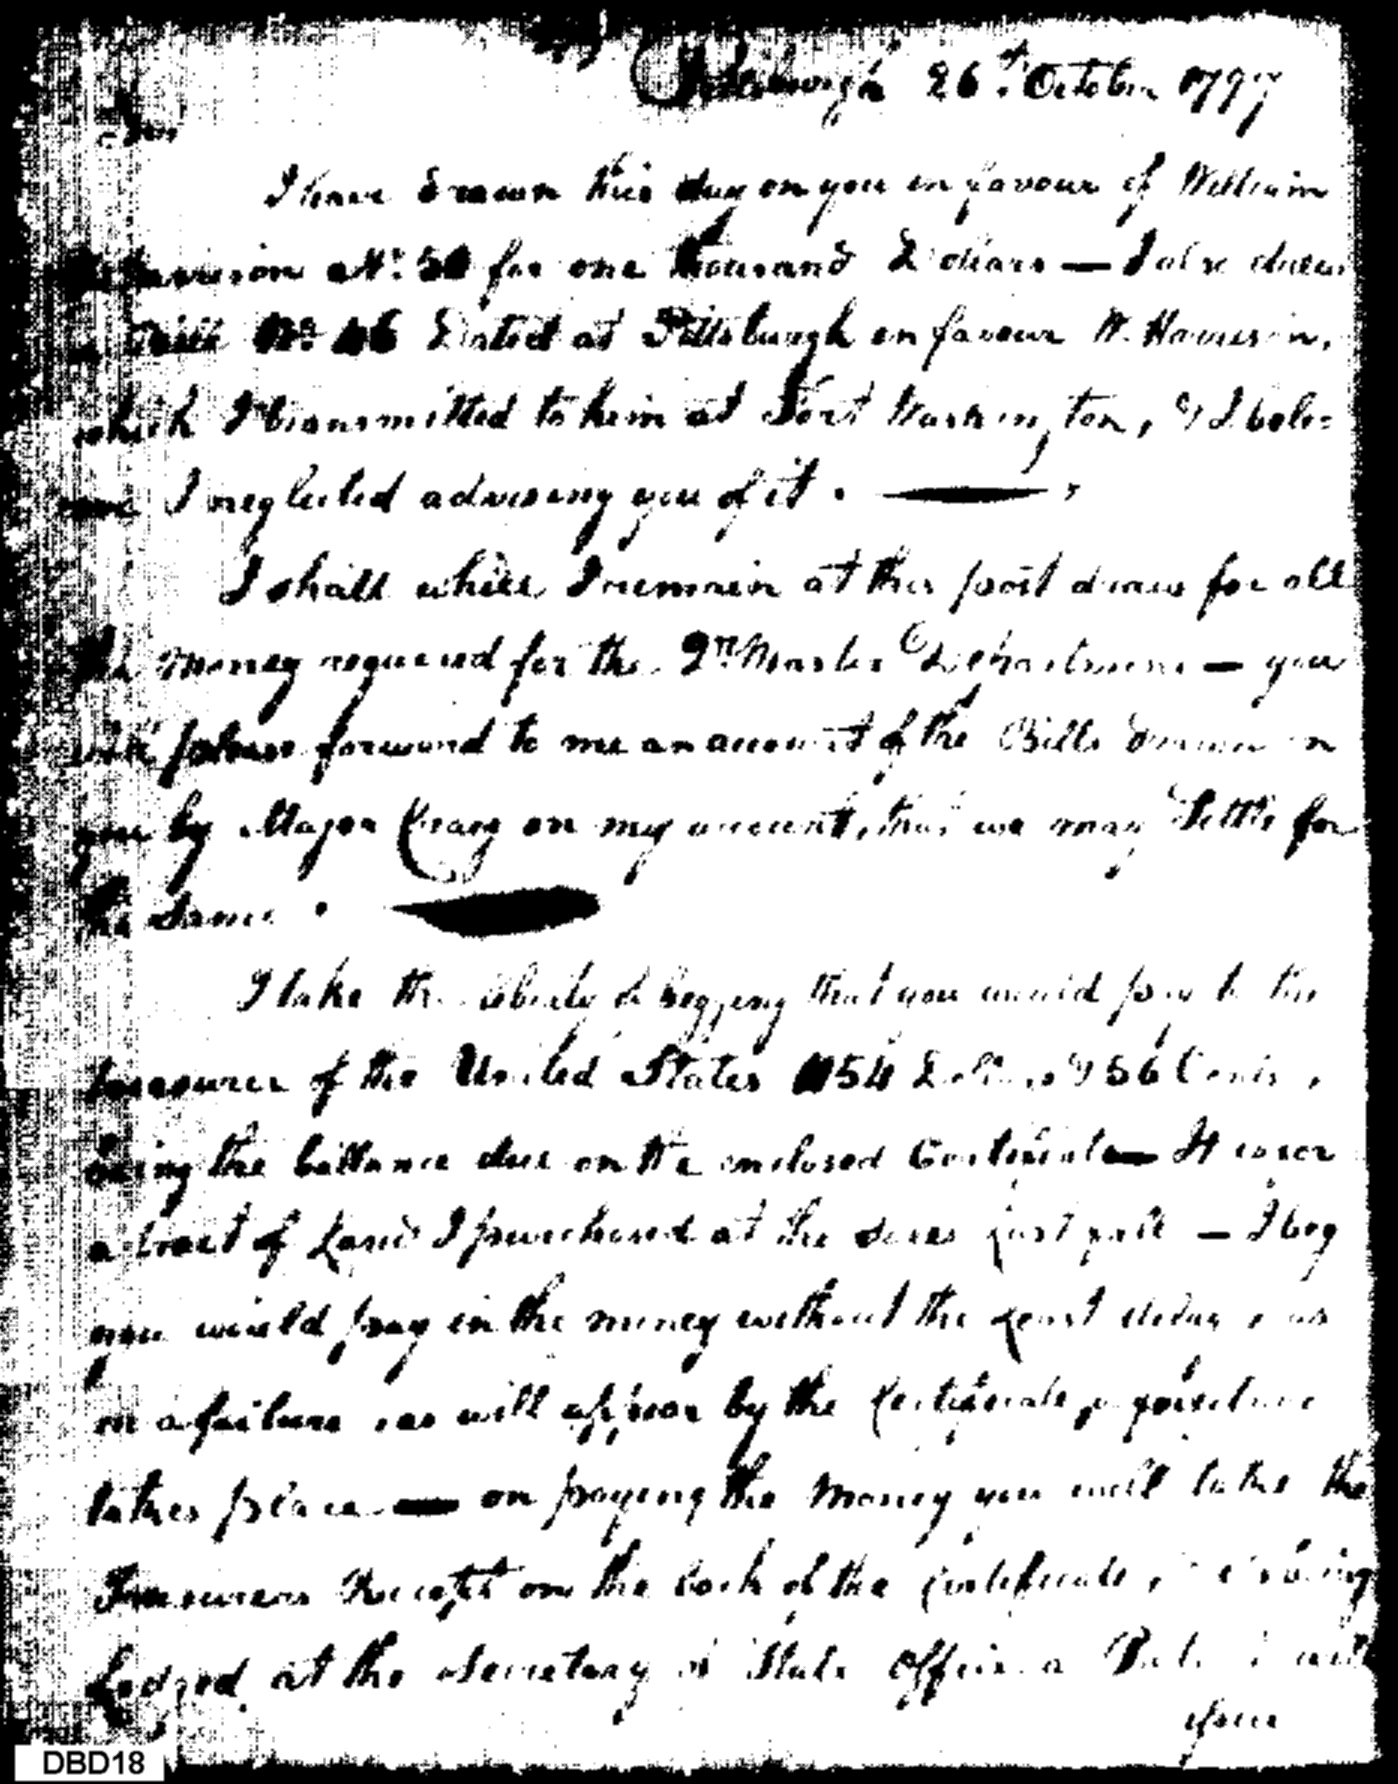 Pittsburgh 26th October 1797
Sir
I have drawn this day on you in favour of William
Harrison No. 50 for one thousand Dollars — I also drew
a Bill No. 46 Dated at Pittsburgh in favour W. Harrison,
which I transmitted to him at Fort Washington, & I bele=
I neglected advising you of it.
I shall while I remain at this post draw for all
the Money required for the Qr. Master Department — you
will please forward to me an account of the Bills drawn on
you by Major Craig on my account, that we may Settle for
the Same.
I take the liberty of begging that you would pay to the
treasurer of the United States 1154 Dollars & 56 Cents,
being the ballance due on the enclosed Certificate — It is for
a tract of Land I purchased at the Sales last fall — I beg
you would pay in the money without the least delay, as
on a failure, as will appear by the Certificate, a forfeiture
takes place — on paying the Money you will take the
Treasurers Receipt on the back of the Certificate, & it being
Lodged at the Secretary of State Office a Patent will
issue
DBD18